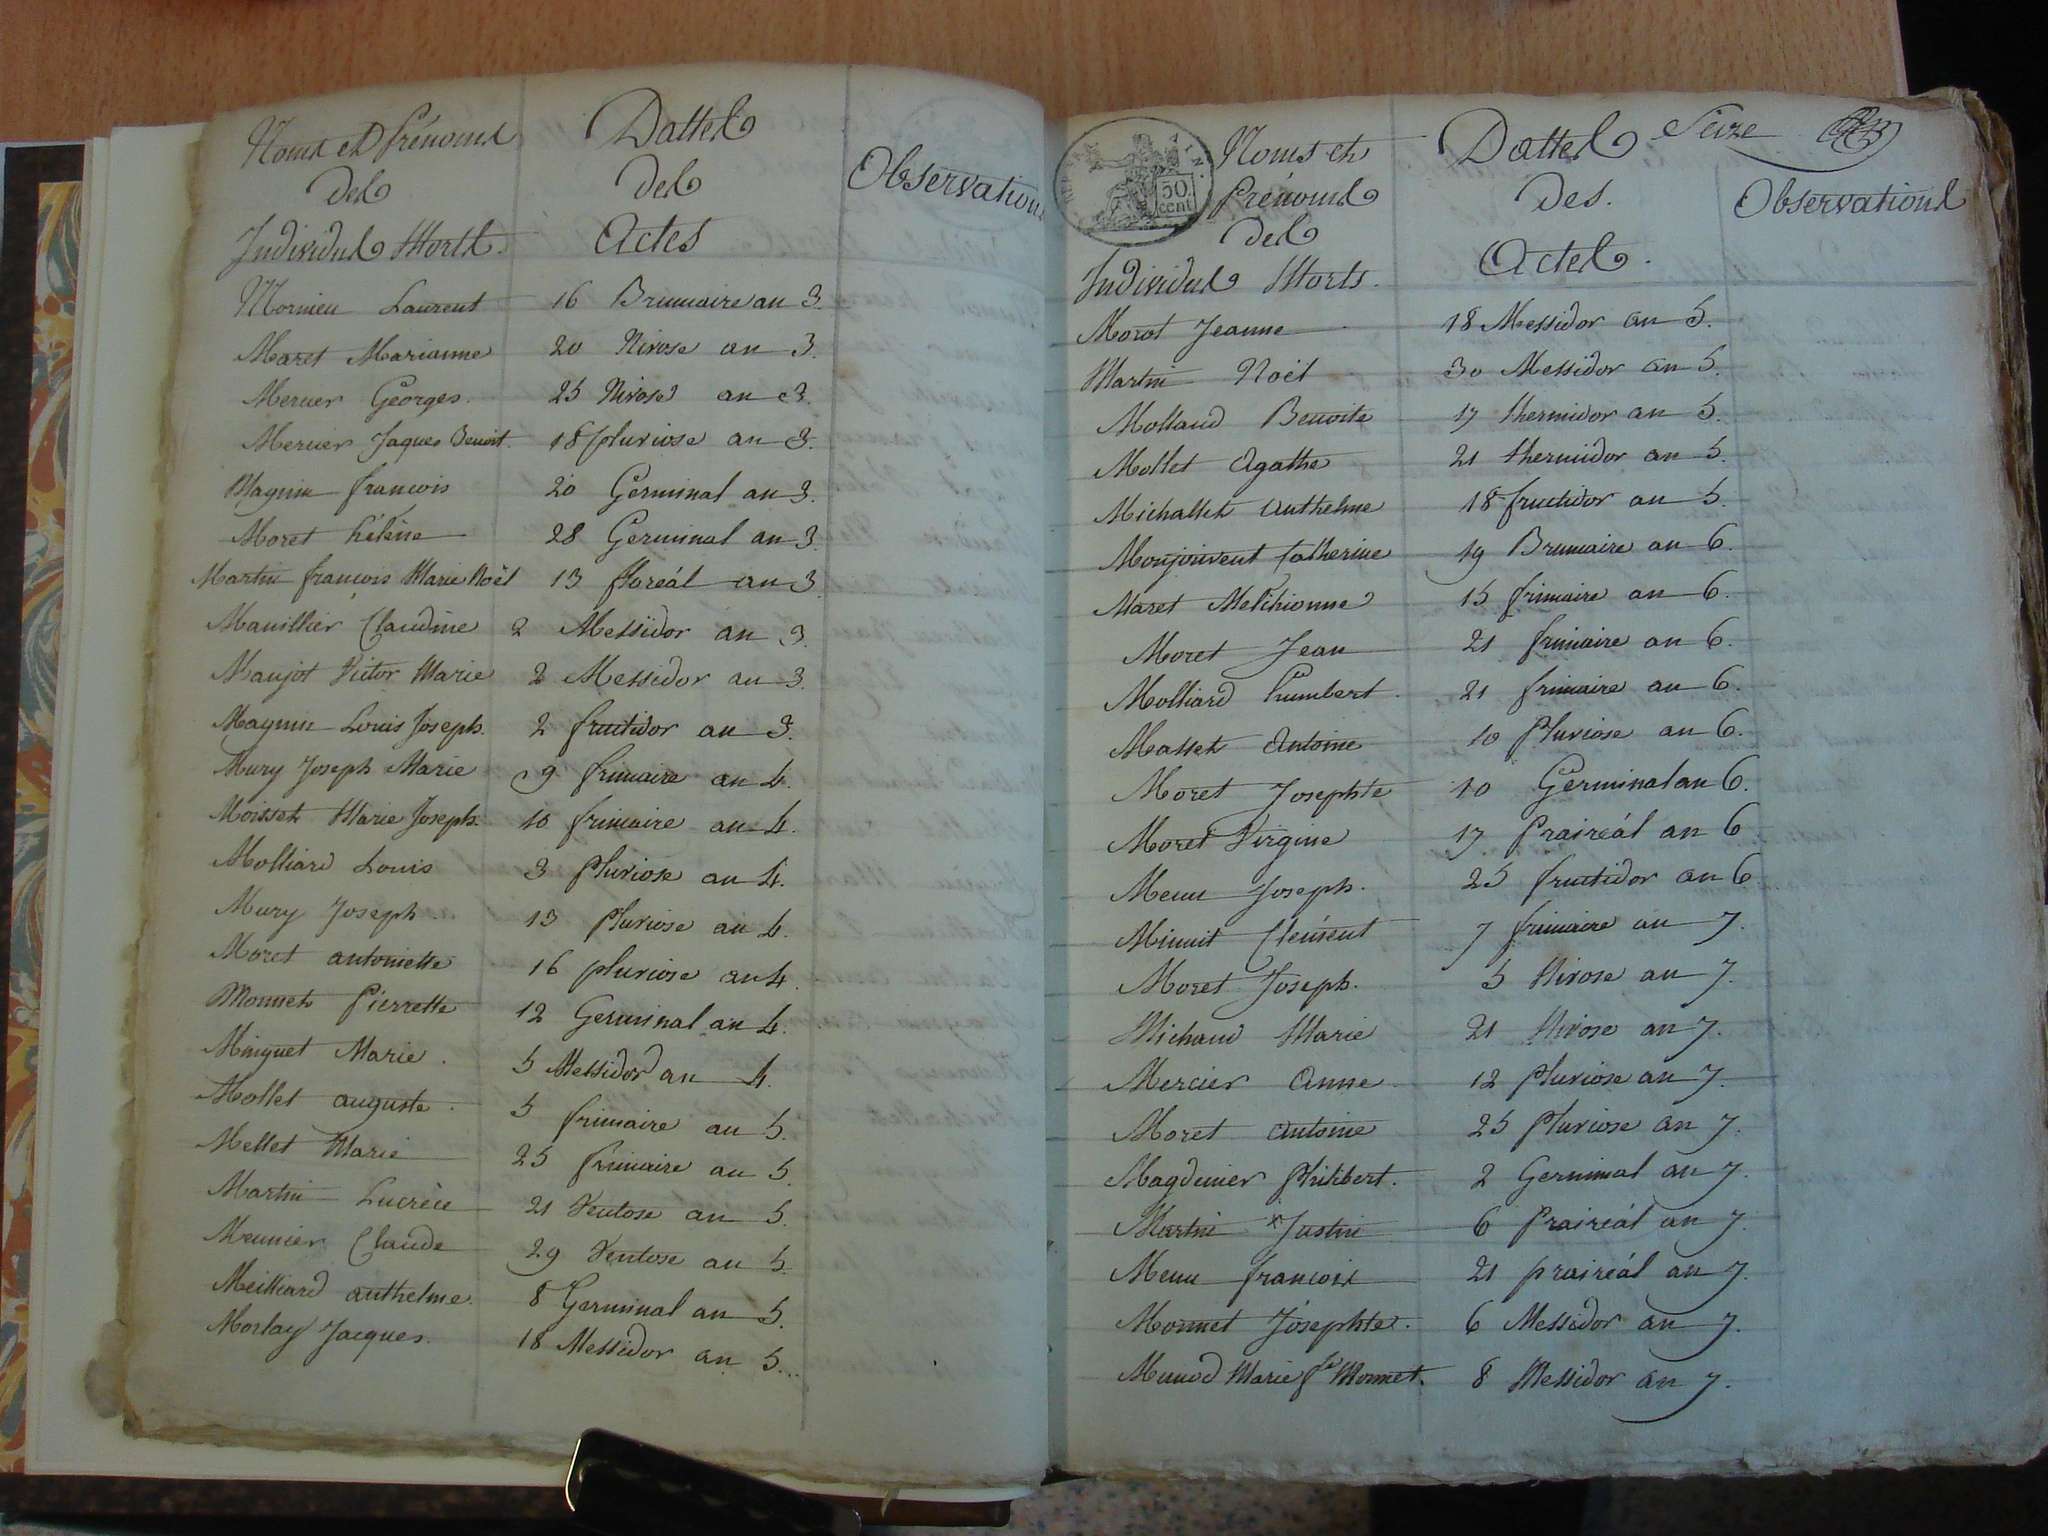 Noms et Prénoms
des
Individus Morts.
Dattes
des
Actes
Observations
Mornieu Laurent 16 Brumaire an 3.
Maret Marianne 20 Nivose an 3.
Mercier Georges. 25 Nivose an 3.
Mercier Jaques Benoit. 18 pluviose an 3.
Magnin francois 20 Germinal an 3.
Moret hélène 28 Germinal an 3.
Martin francois Marie Noël 13 floréal an 3.
Mauillier Claudine 2 Messidor an 3.
Maujot Victor Marie 2 Messidor an 3.
Magnin Louis Joseph. 2 fructidor an 3.
Mury Joseph Marie 9 frimaire an 4.
Moisset Marie Joseph. 10 frimaire an 4.
Molliard Louis 3 Pluviose an 4.
Mury Joseph. 13 Pluviose an 4.
Moret antoinette 16 pluviose an 4.
Monnet Pierrette 12 Germinal an 4.
Minguet Marie. 5 Messidor an 4.
Mollet auguste. 5 frimaire an 5.
Mellet Marie 25 frimaire an 5.
Martin Lucrèce 21 Ventose an 5.
Meunier Claude 29 Ventose an 5.
Meilliard anthelme. 8 Germinal an 5.
Morlay Jacques. 18 Messidor an 5...
50
cent
Noms et
Prénoms
des
Individus Morts.
Dattes
des.
Actes.
Seize
Observations
Morot Jeanne 18 Messidor an 5.
Martin Noël 30 Messidor an 5.
Mollaud Benoite 17 thermidor an 5.
Mollet Agathe 21 thermidor an 5.
Michallet anthelme 18 fructidor an 5.
Monjouvent Catherine 19 Brumaire an 6.
Maret Melchionne 15 frimaire an 6.
Moret Jean 21 frimaire an 6.
Molliard humbert. 21 frimaire an 6.
Masset Antoine 10 Pluviose an 6.
Moret Josephte 10 Germinal an 6.
Moret Virgine 17 Prairéal an 6
Menu Joseph. 25 fructidor an 6
Minuit Clément 7 frimaire an 7.
Moret Joseph. 5 Nivose an 7.
Michaud Marie 21 Nivose an 7.
Mercier Anne. 12 Pluviose an 7.
Moret Antoine 25 Pluviose an 7.
Magdinier Philibert. 2 Germinal an 7.
Martin Justin 6 Prairéal an 7.
Menu francois 21 prairéal an 7.
Monnet Josephte. 6 Messidor an 7.
Munod Marie fe Monnet. 8 Messidor an 7.